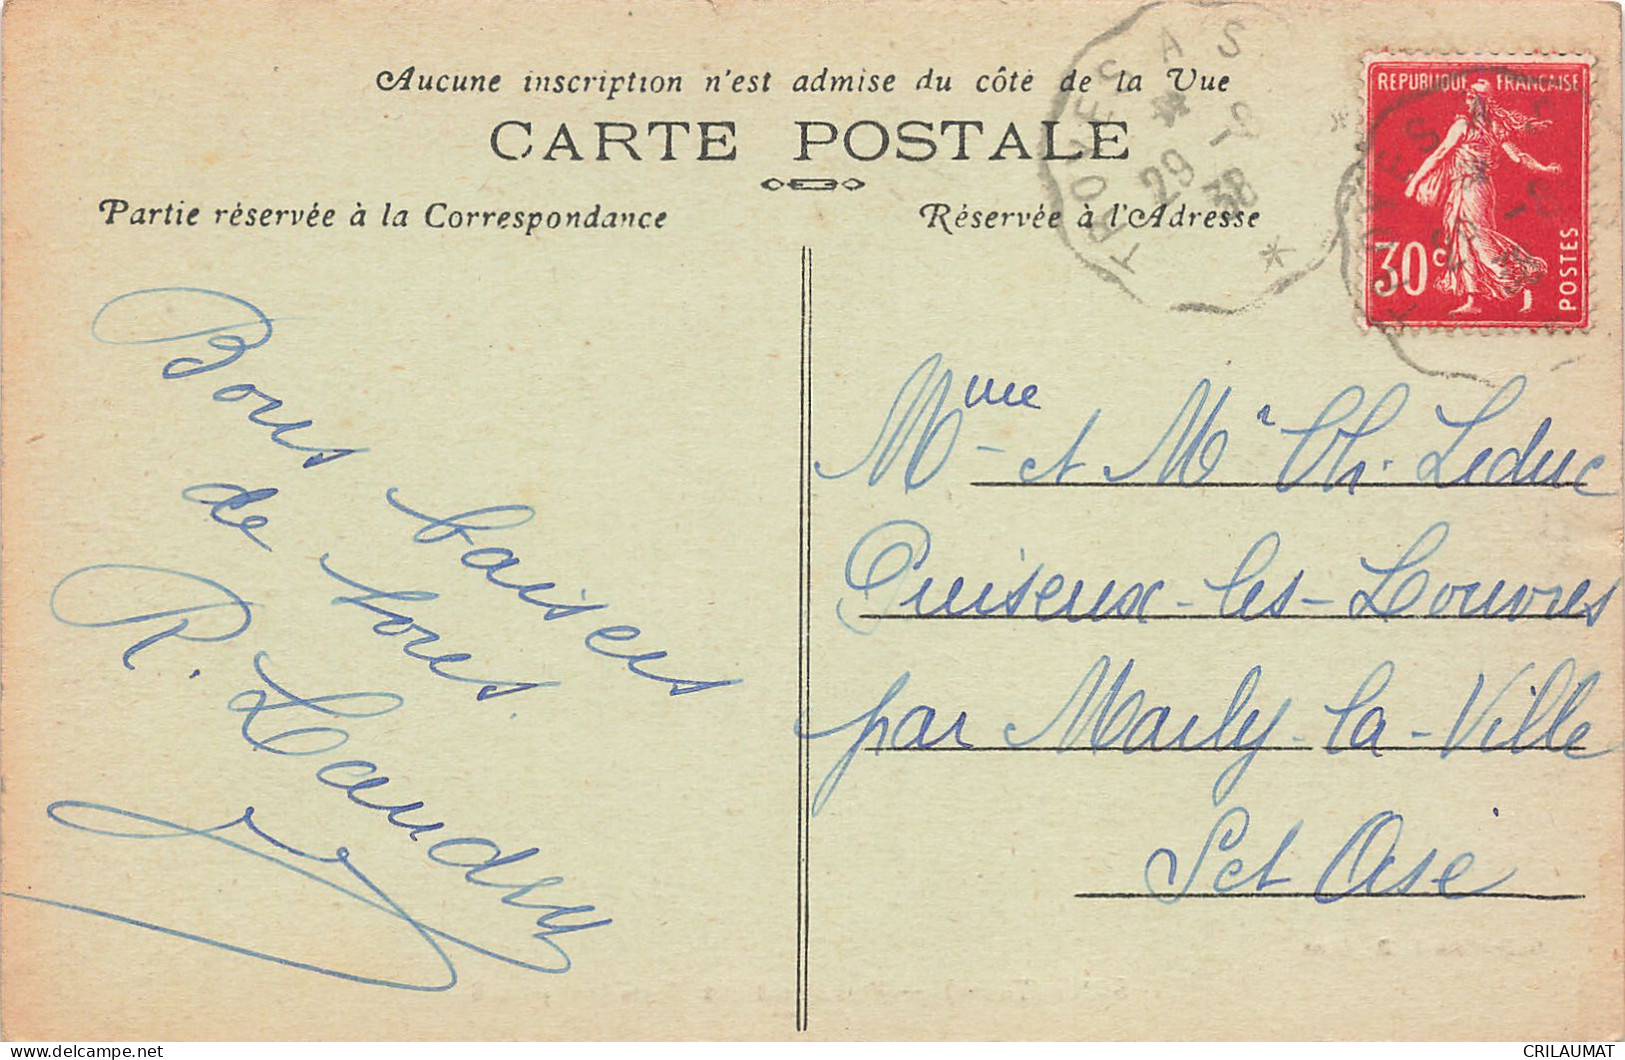 Aucune inscription n'est admise du côté de la Vue
CARTE POSTALE
Partie réservée à la Correspondance
Réservée à l'Adresse
TROYES A S
29 -8
38
REPUBLIQUE FRANÇAISE
30c
POSTES
Bons baisers
de tous.
R. Landry
Mme et Mr Ch. Leduc
Puiseux-les-Louvres
par Marly-la-Ville
Set Oise
delcampe.net
CRILAUMAT